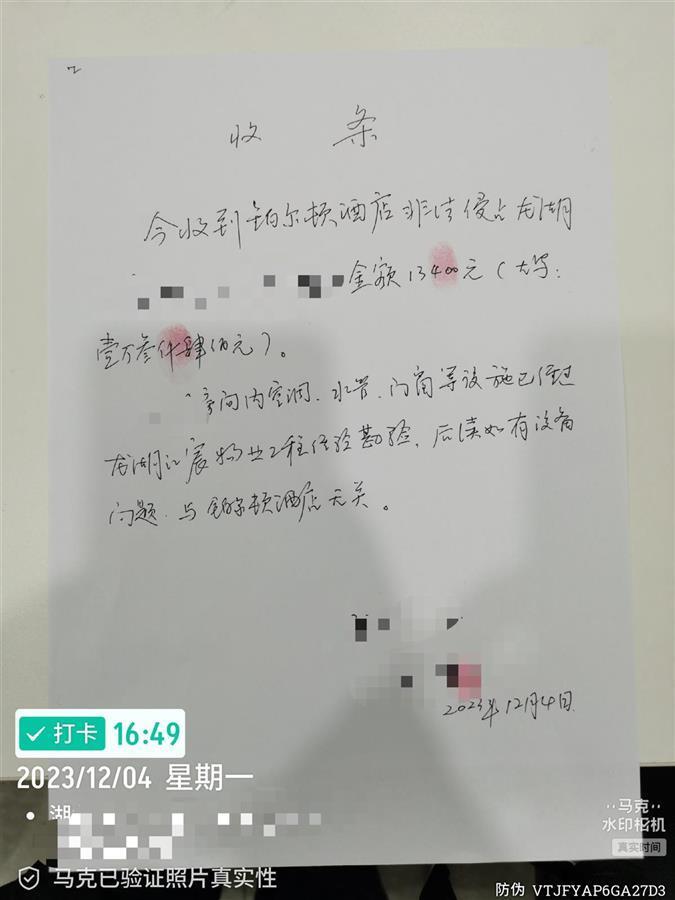 收条
今收到铂尔顿酒店非法侵占龙湖
金额13400元(大写:
壹万叁仟肆佰元)。
房间内空调、水管、门窗等设施已经过
龙湖江宸物业工程经验勘验,后续如有设备
问题,与铂尔顿酒店无关。
2023年12月4日
打卡 16:49
2023/12/04 星期一
湖
马克
水印相机
真实时间
马克已验证照片真实性
防伪 VTJFYAP6GA27D3